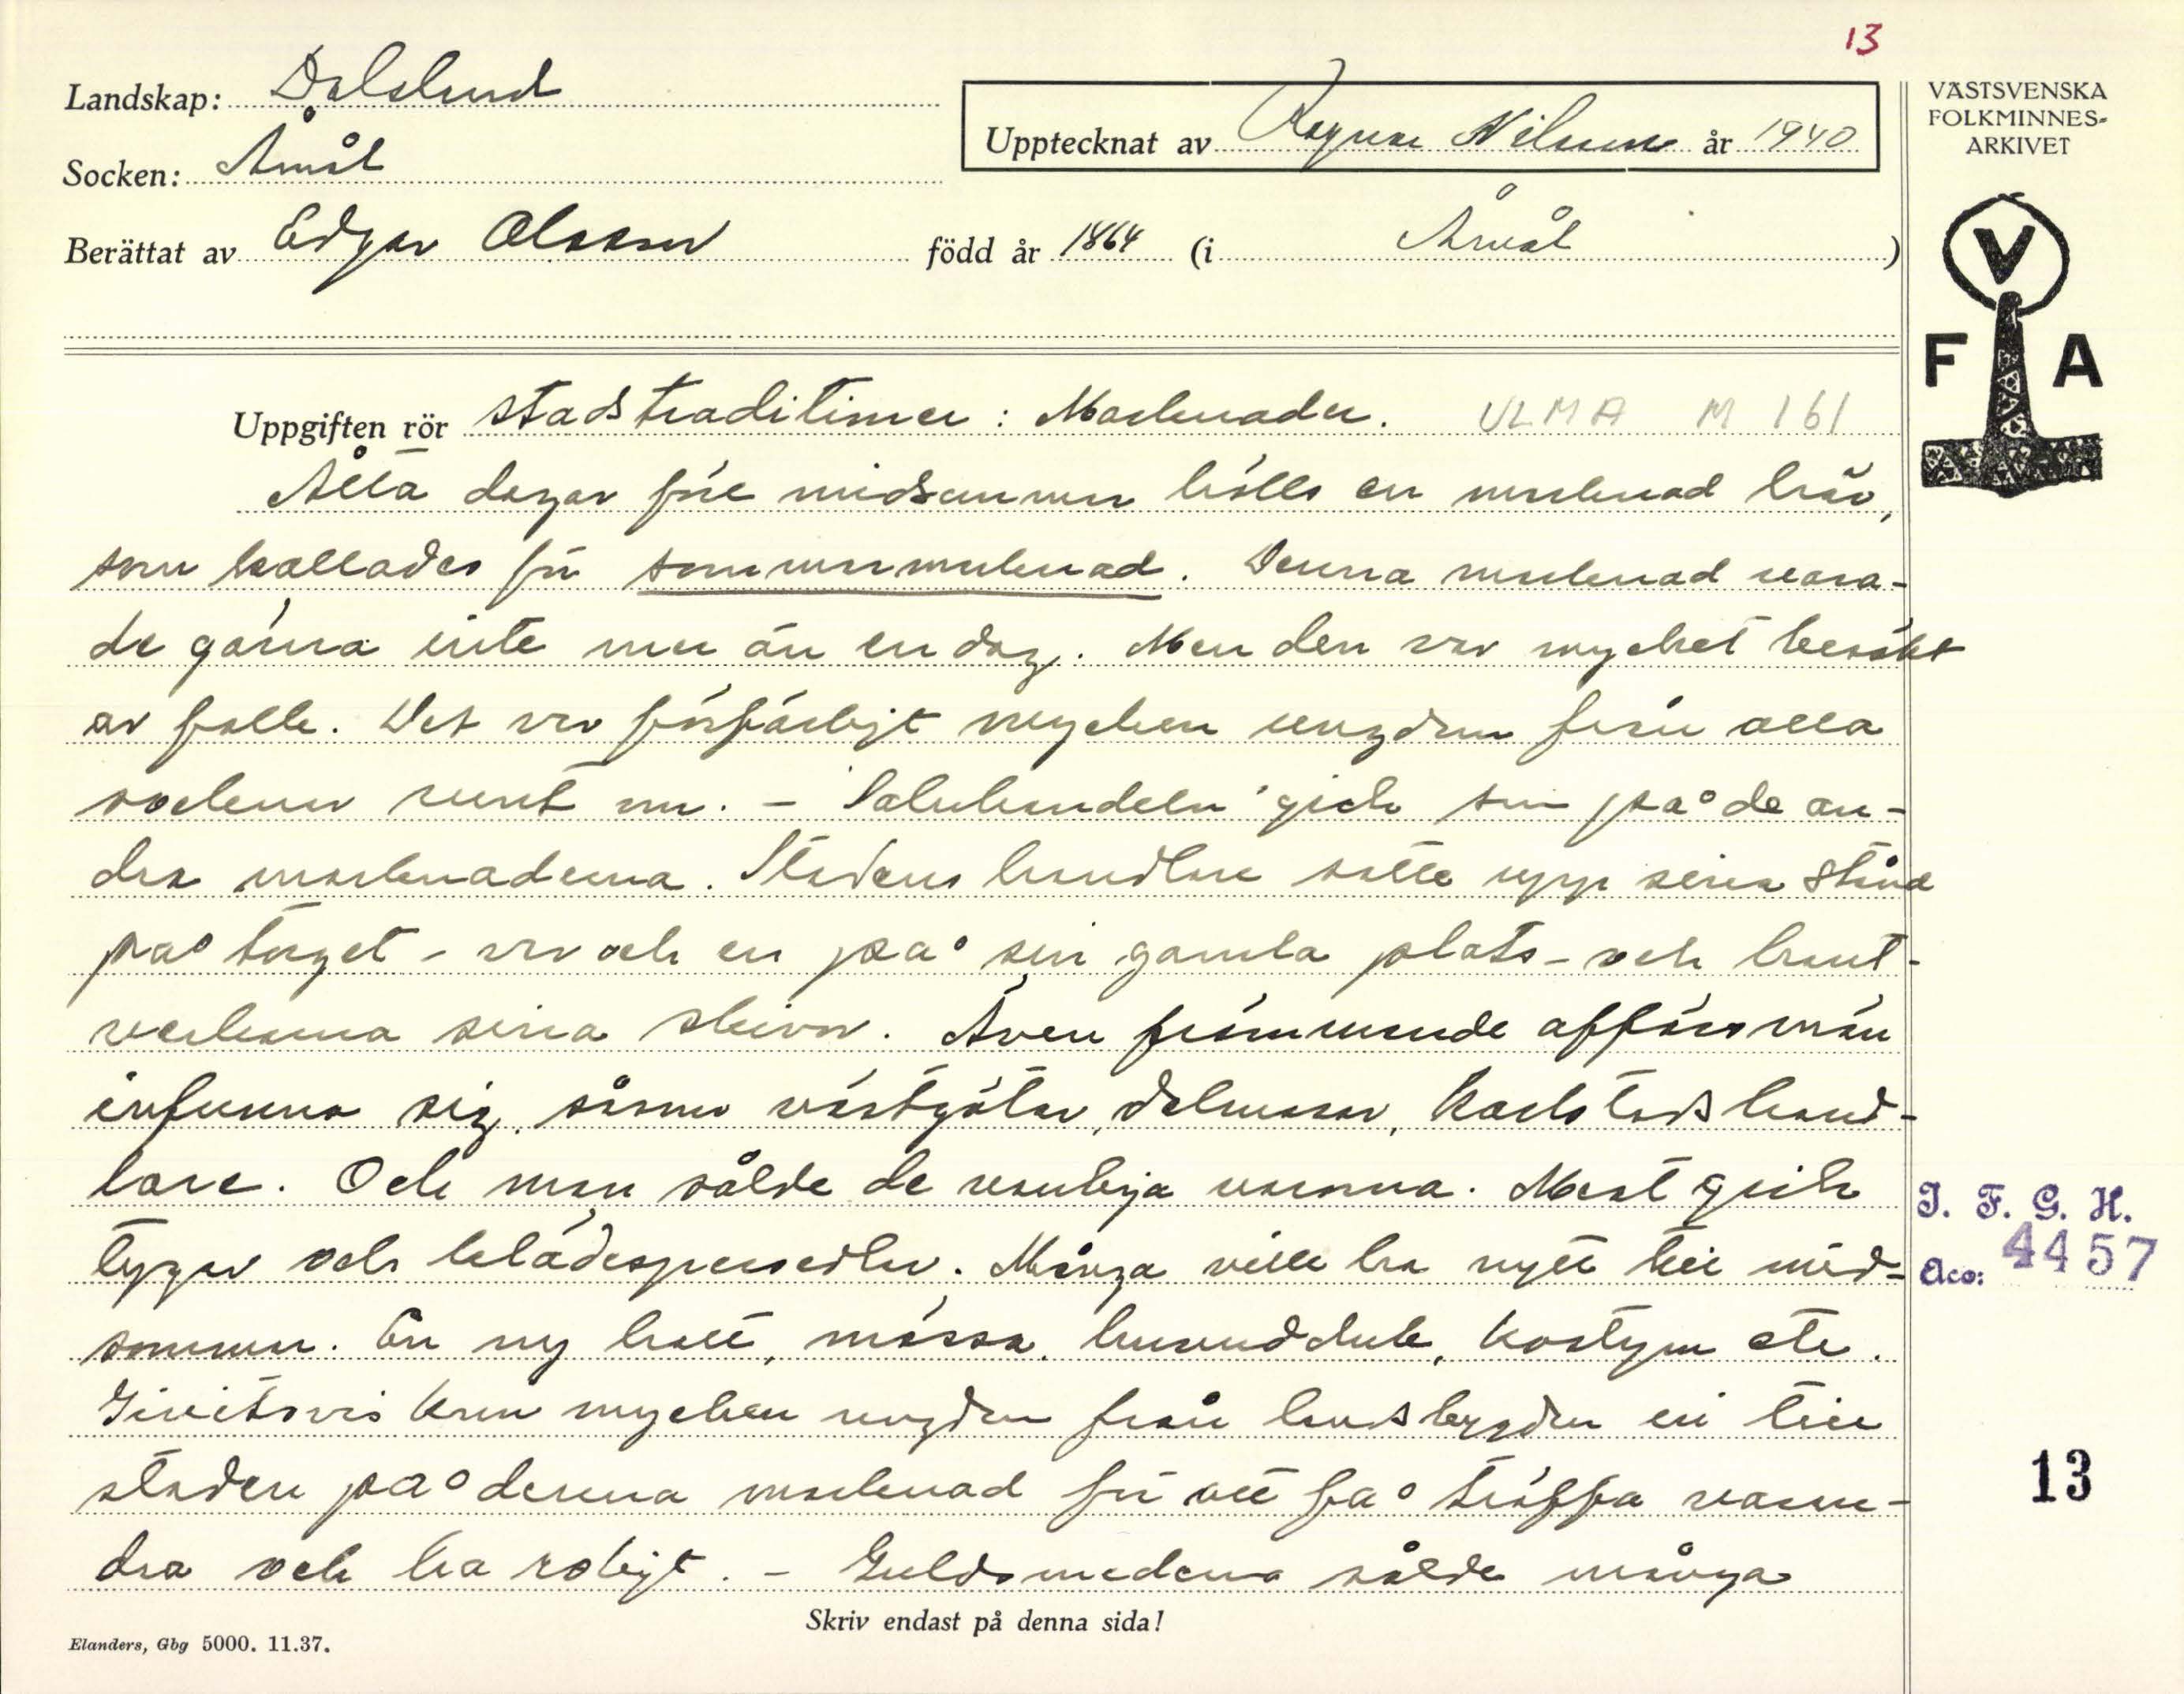 13
Landskap: Dalsland
Upptecknat av Ragnar Nilsson år 1940
VÄSTSVENSKA
FOLKMINNES-
ARKIVET
Socken: Åmål
Berättat av Edgar Olsson född år 1864 (i Åmål )
V
F A
Uppgiften rör stadstraditioner: Marknader. ULMA M 161
Åtta dagar före midsommar hölls en marknad här,
som kallades för sommarmarknad. Denna marknad vara-
de gärna inte mer än en dag. Men den var mycket besökt
av folk. Det var förfärligt mycken ungdom från alla
socknar runt om. - Saluhandeln gick som på de an-
dra marknaderna. Stadens handlare satte upp sina stånd
på torget - var och en på sin gamla plats - och hant-
verkarna sina skivor. Även främmande affärsmän
infunno sig, såsom västgötar, dalmasar, Karlstads hand-
lare. Och man sålde de vanliga varorna. Mest gick
tyger och klädespersedlar. Många ville ha nytt till mid-
sommar. En ny hatt, mössa, huvudduk, kostym etc.
Givetvis kom mycken ungdom från landsbygden in till
staden på denna marknad för att få träffa varan-
dra och ha roligt. - Guldsmederna sålde många
J. F. G. H.
Acc: 4457
13
Skriv endast på denna sida!
Elanders, Gbg 5000. 11.37.